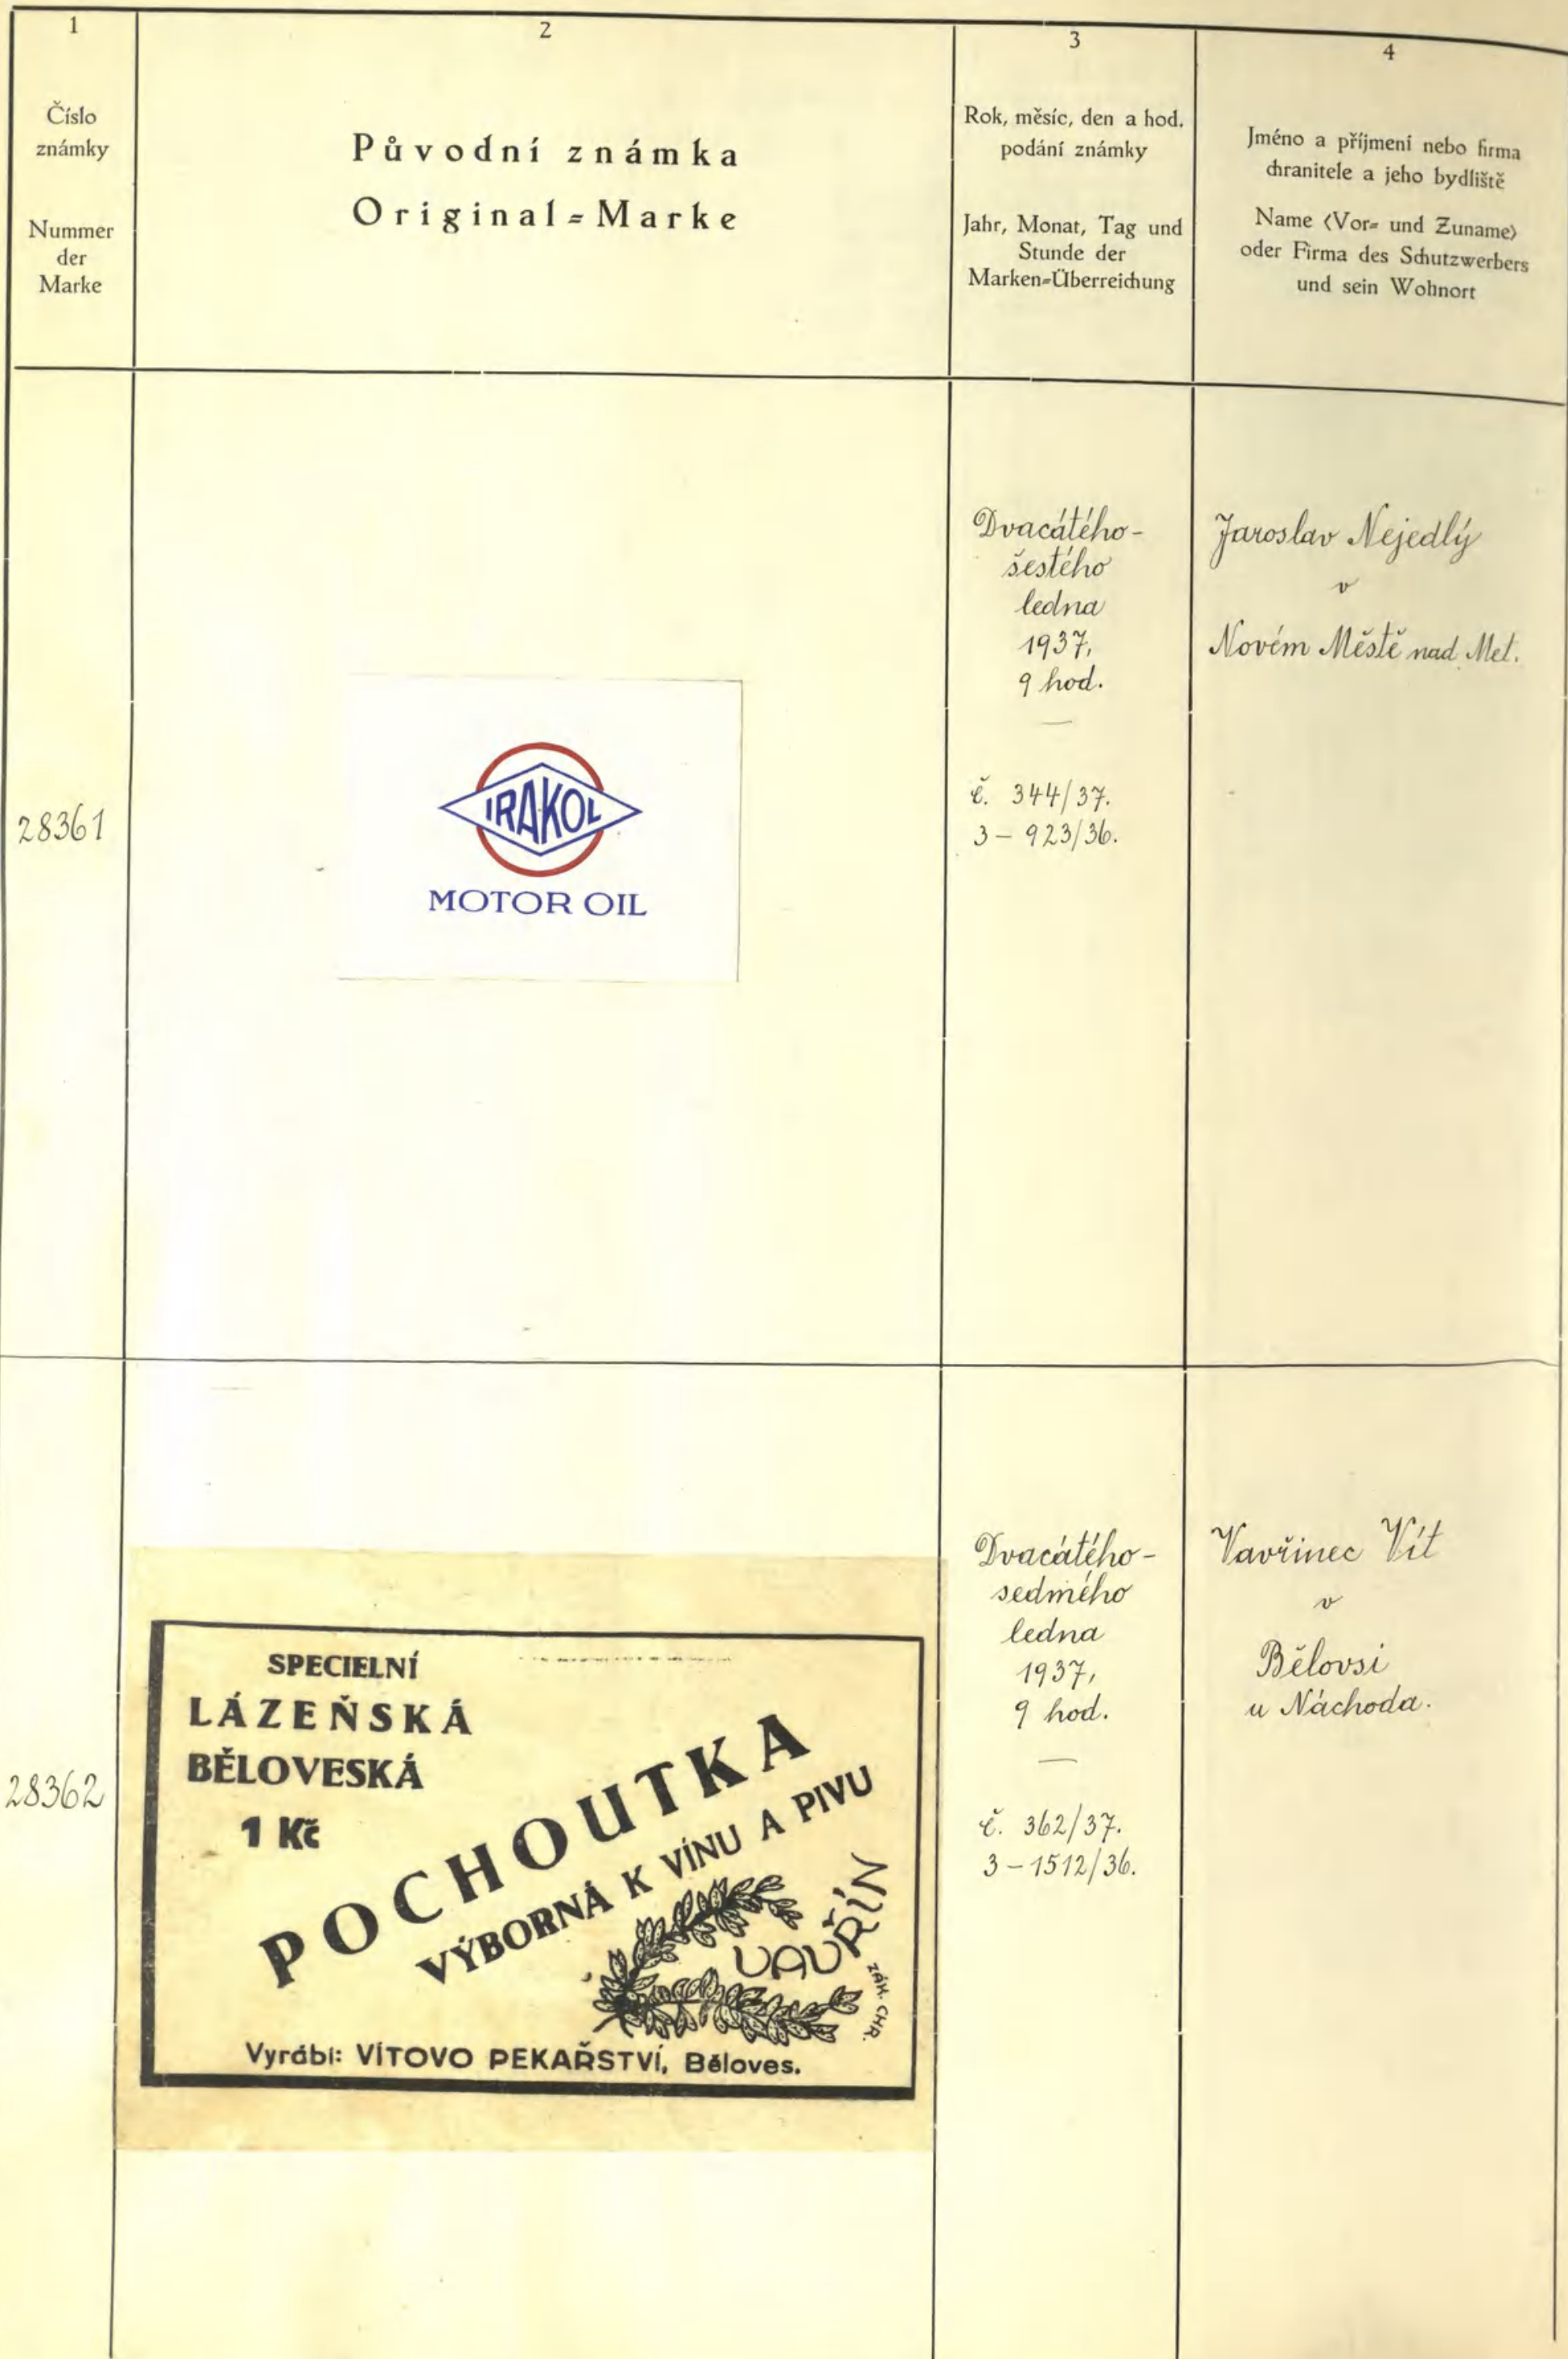 1
Číslo
známky
Nummer
der
Marke
2
Původní známka
Original=Marke
3
Rok, měsíc, den a hod.
podání známky
Jahr, Monat, Tag und
Stunde der
Marken=Überreichung
4
Jméno a příjmení nebo firma
chranitele a jeho bydliště
Name (Vor= und Zuname)
oder Firma des Schutzwerbers
und sein Wohnort
28361
IRAKOL
MOTOR OIL
Dvacátého-
šestého
ledna
1937,
9 hod.
č. 344/37.
3 – 923/36.
Jaroslav Nejedlý
v
Novém Městě nad Met.
28362
SPECIELNÍ
LÁZEŇSKÁ
BĚLOVESKÁ
1 Kč
POCHOUTKA
VÝBORNÁ K VÍNU A PIVU
VAVŘÍN
ZÁK. CHR.
Vyrábí: VÍTOVO PEKAŘSTVÍ, Běloves.
Dvacátého-
sedmého
ledna
1937,
9 hod.
č. 362/37.
3 – 1512/36.
Vavřinec Vít
v
Bělovsi
u Náchoda.